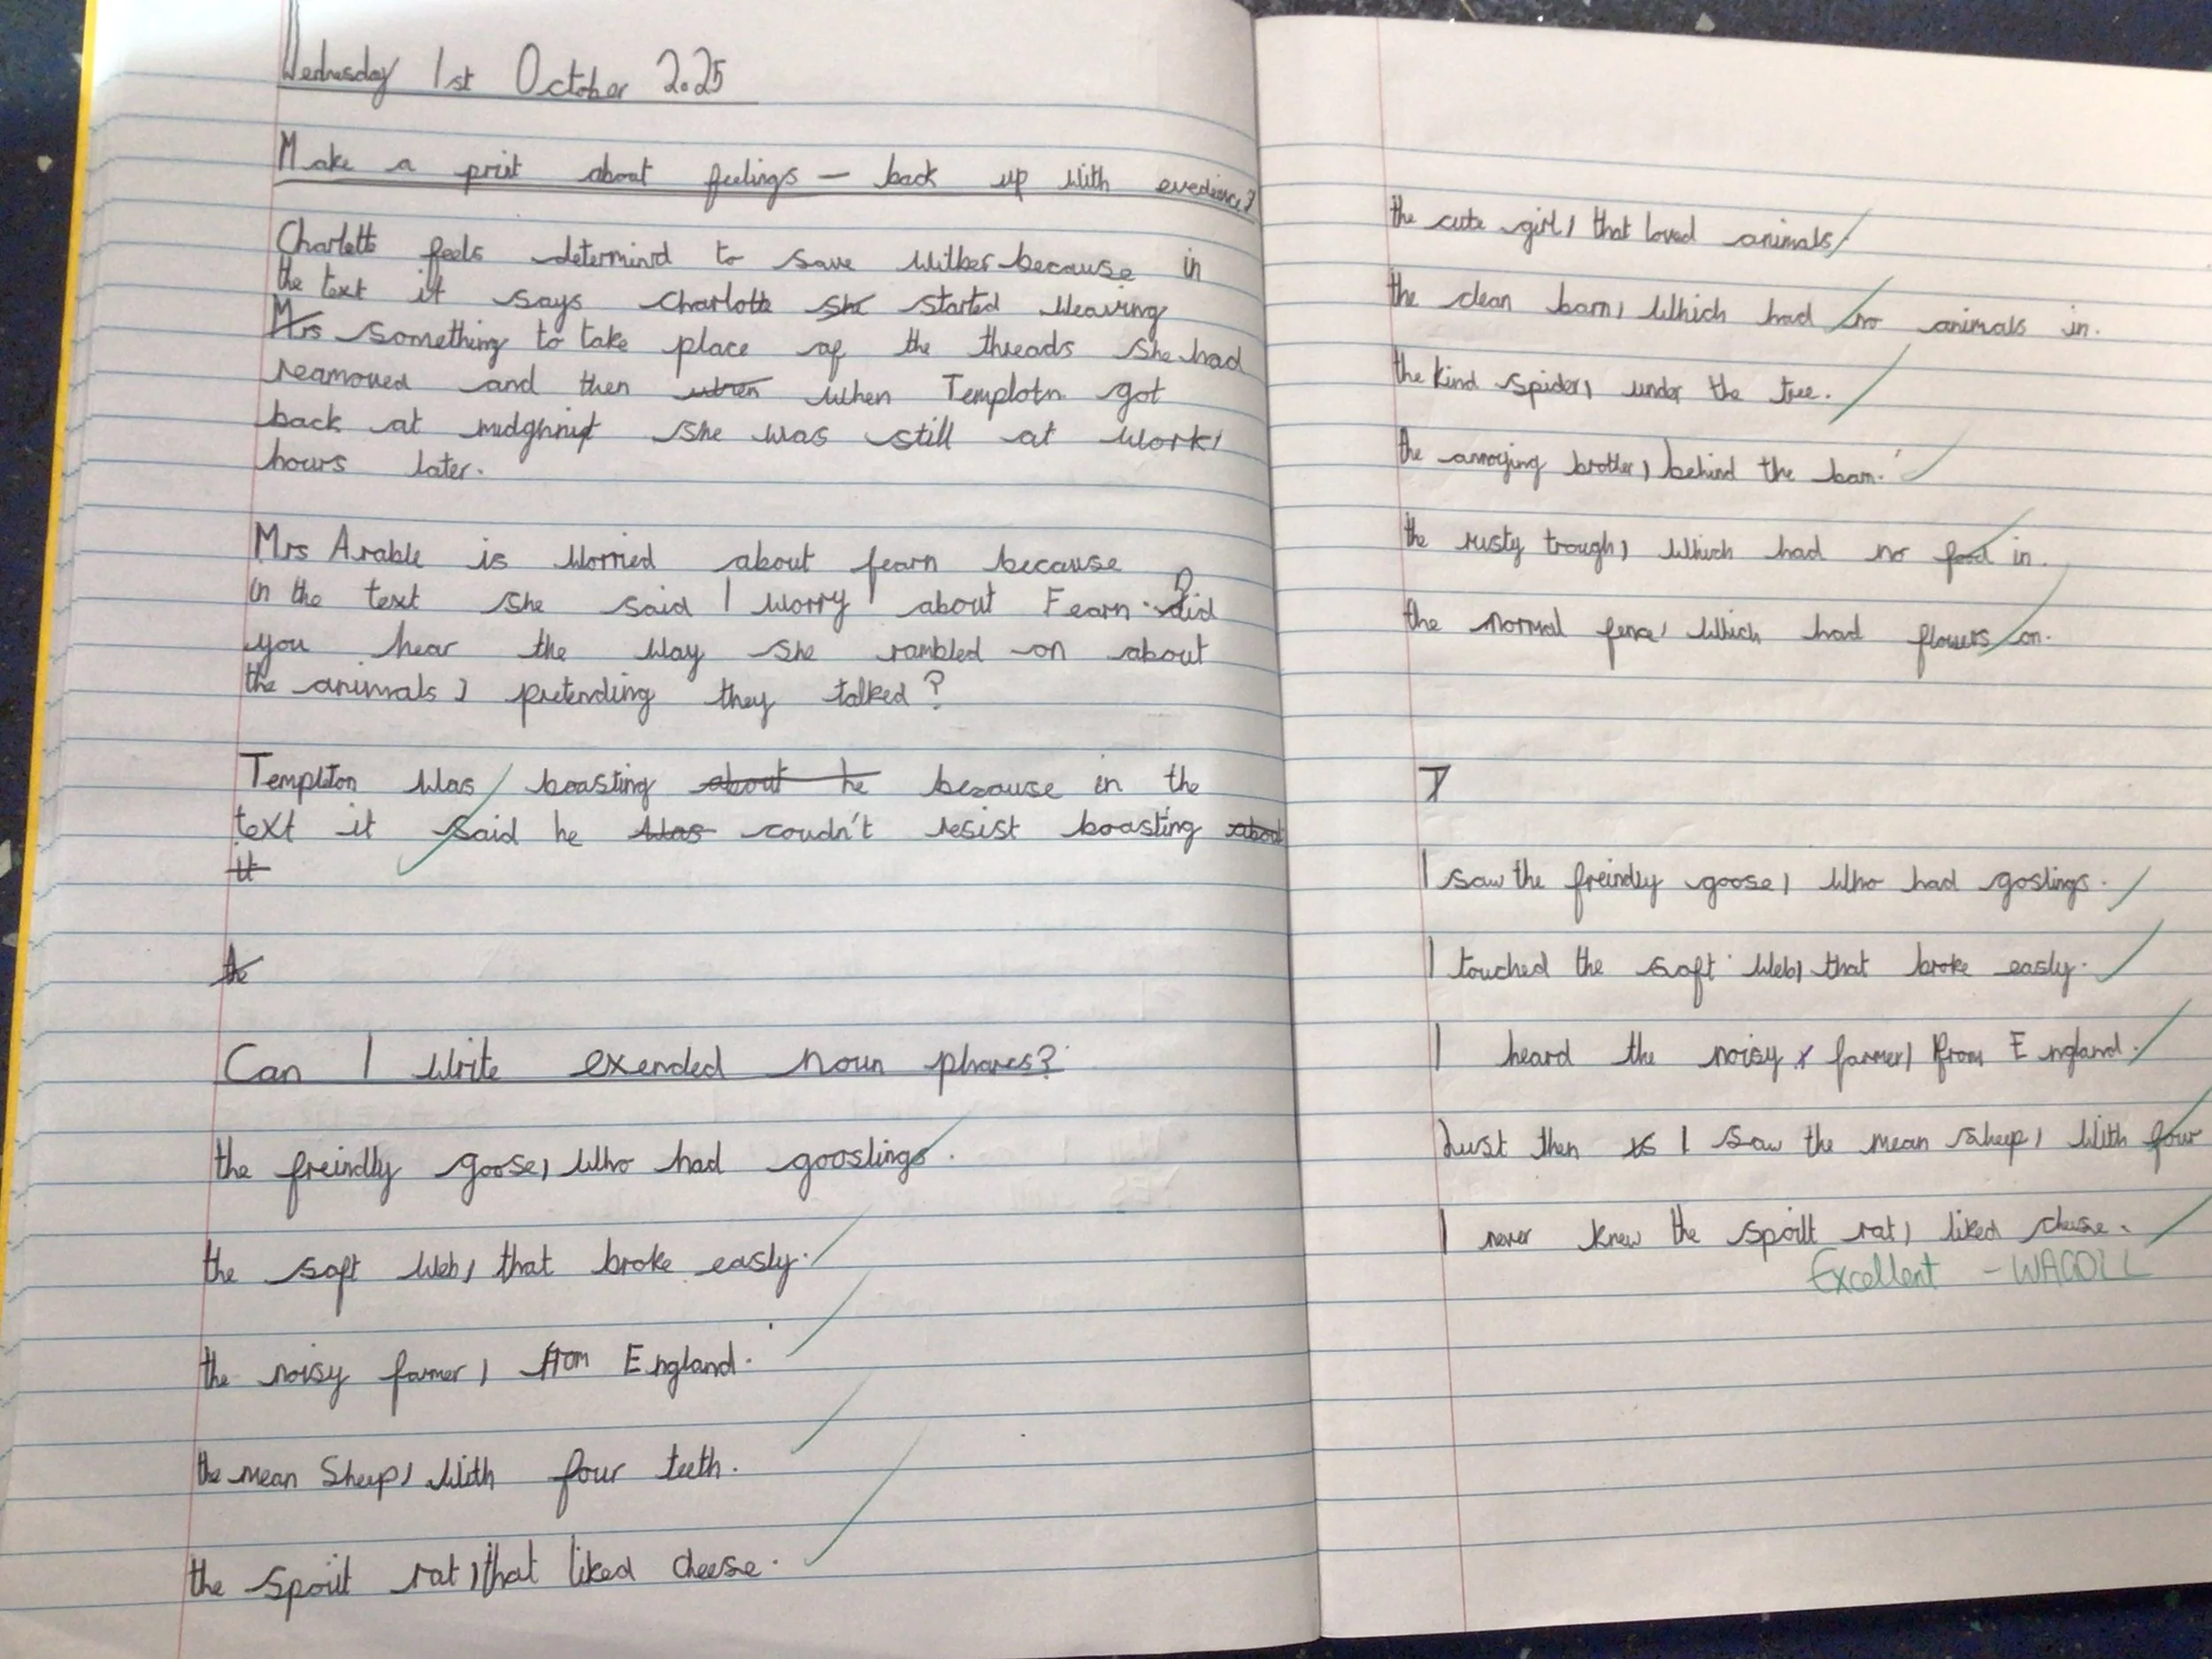 Wednesday 1st October 2025
Make a priut about feelings – back up with evedience?
Charlotte feels determind to save Wilber because in
the text it says Charlotte she started weaving
Mrs something to take place of the threads she had
reamoved and then when when Templotn got
back at midghnit she was still at work,
hours later.
Mrs Arable is worried about fearn because
in the text she said I worry about Fearn. Did
you hear the way she rambled on about
the animals, pretending they talked?
Templton was boasting about he because in the
text it said he was coudn't resist boasting about
it
the
Can I write exended noun phares?
the freindly goose, who had gooslings.
the soft web, that broke easly.
the noisy farmer, from England.
the mean sheep, with four teeth.
the spoilt rat, that liked cheese.
the cute girl, that loved animals.
the clean barn, which had no animals in.
the kind spider, under the tree.
the annoying brother, behind the barn.
the rusty trough, which had no food in.
the normal fence, which had flowers on.
I
I saw the freindly goose, who had goslings.
I touched the soft web, that broke easly.
I heard the noisy farmer, from England.
Just then I saw the mean sheep, with four
I never knew the spoilt rat, liked cheese.
Excellent – WAGOLL